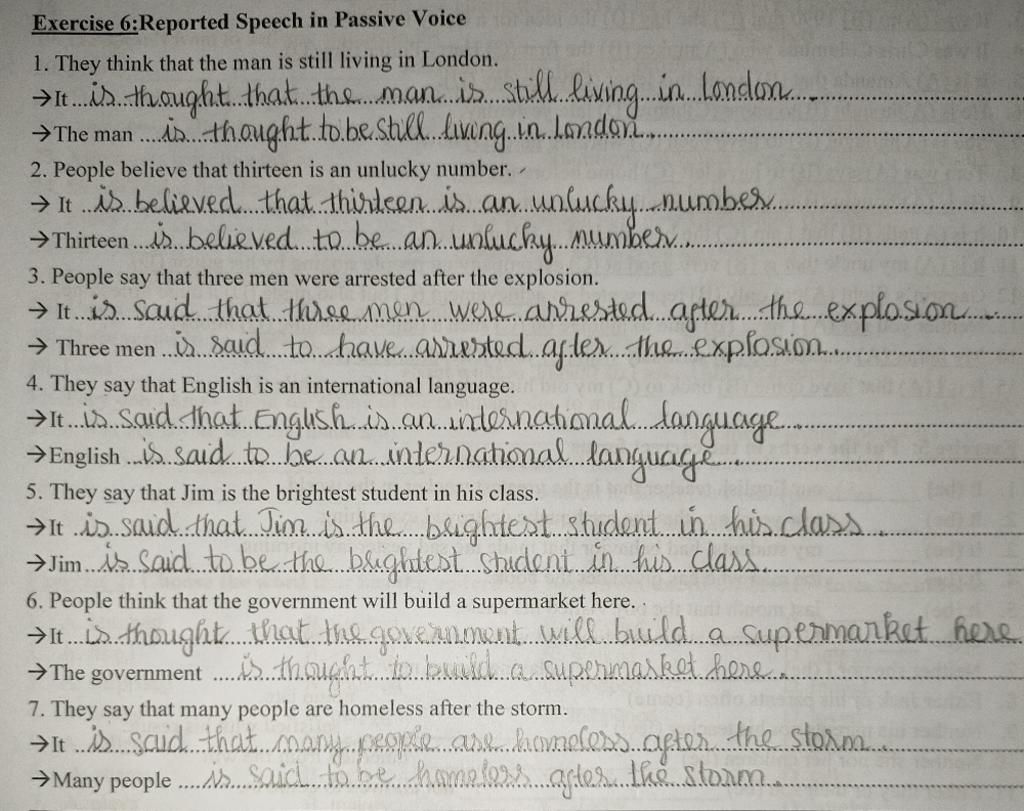 Exercise 6:Reported Speech in Passive Voice
1. They think that the man is still living in London.
→It ... is thought that the man is still living in London.
→The man .... is thought to be still living in London.
2. People believe that thirteen is an unlucky number.
→ It .. is believed that thirteen is an unlucky number.
→Thirteen .. is believed to be an unlucky number.
3. People say that three men were arrested after the explosion.
→ It .. is said that three men were arrested after the explosion.
→ Three men .. is said to have arrested after the explosion.
4. They say that English is an international language.
→It .. is said that English is an international language.
→English .. is said to be an international language.
5. They say that Jim is the brightest student in his class.
→It .. is said that Jim is the brightest student in his class.
→Jim .. is said to be the brightest student in his class.
6. People think that the government will build a supermarket here.
→It ... is thought that the government will build a supermarket here.
→The government .... is thought to build a supermarket here.
7. They say that many people are homeless after the storm.
→It .. is said that many people are homeless after the storm.
→Many people .... is said to be homeless after the storm.